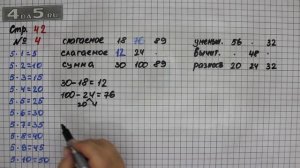 4DA5.RU
Стр. 42
№ 4
5·1=5
5·2=10
5·3=15
5·4=20
5·5=25
5·6=30
5·7=35
5·8=40
5·9=45
5·10=50
слагаемое 18 76 89
слагаемое 12 24 .
сумма 30 100 89
30-18=12
100-24=76
20 4
уменьш. 56 . 32
вычит. . 48 .
разность 20 24 32